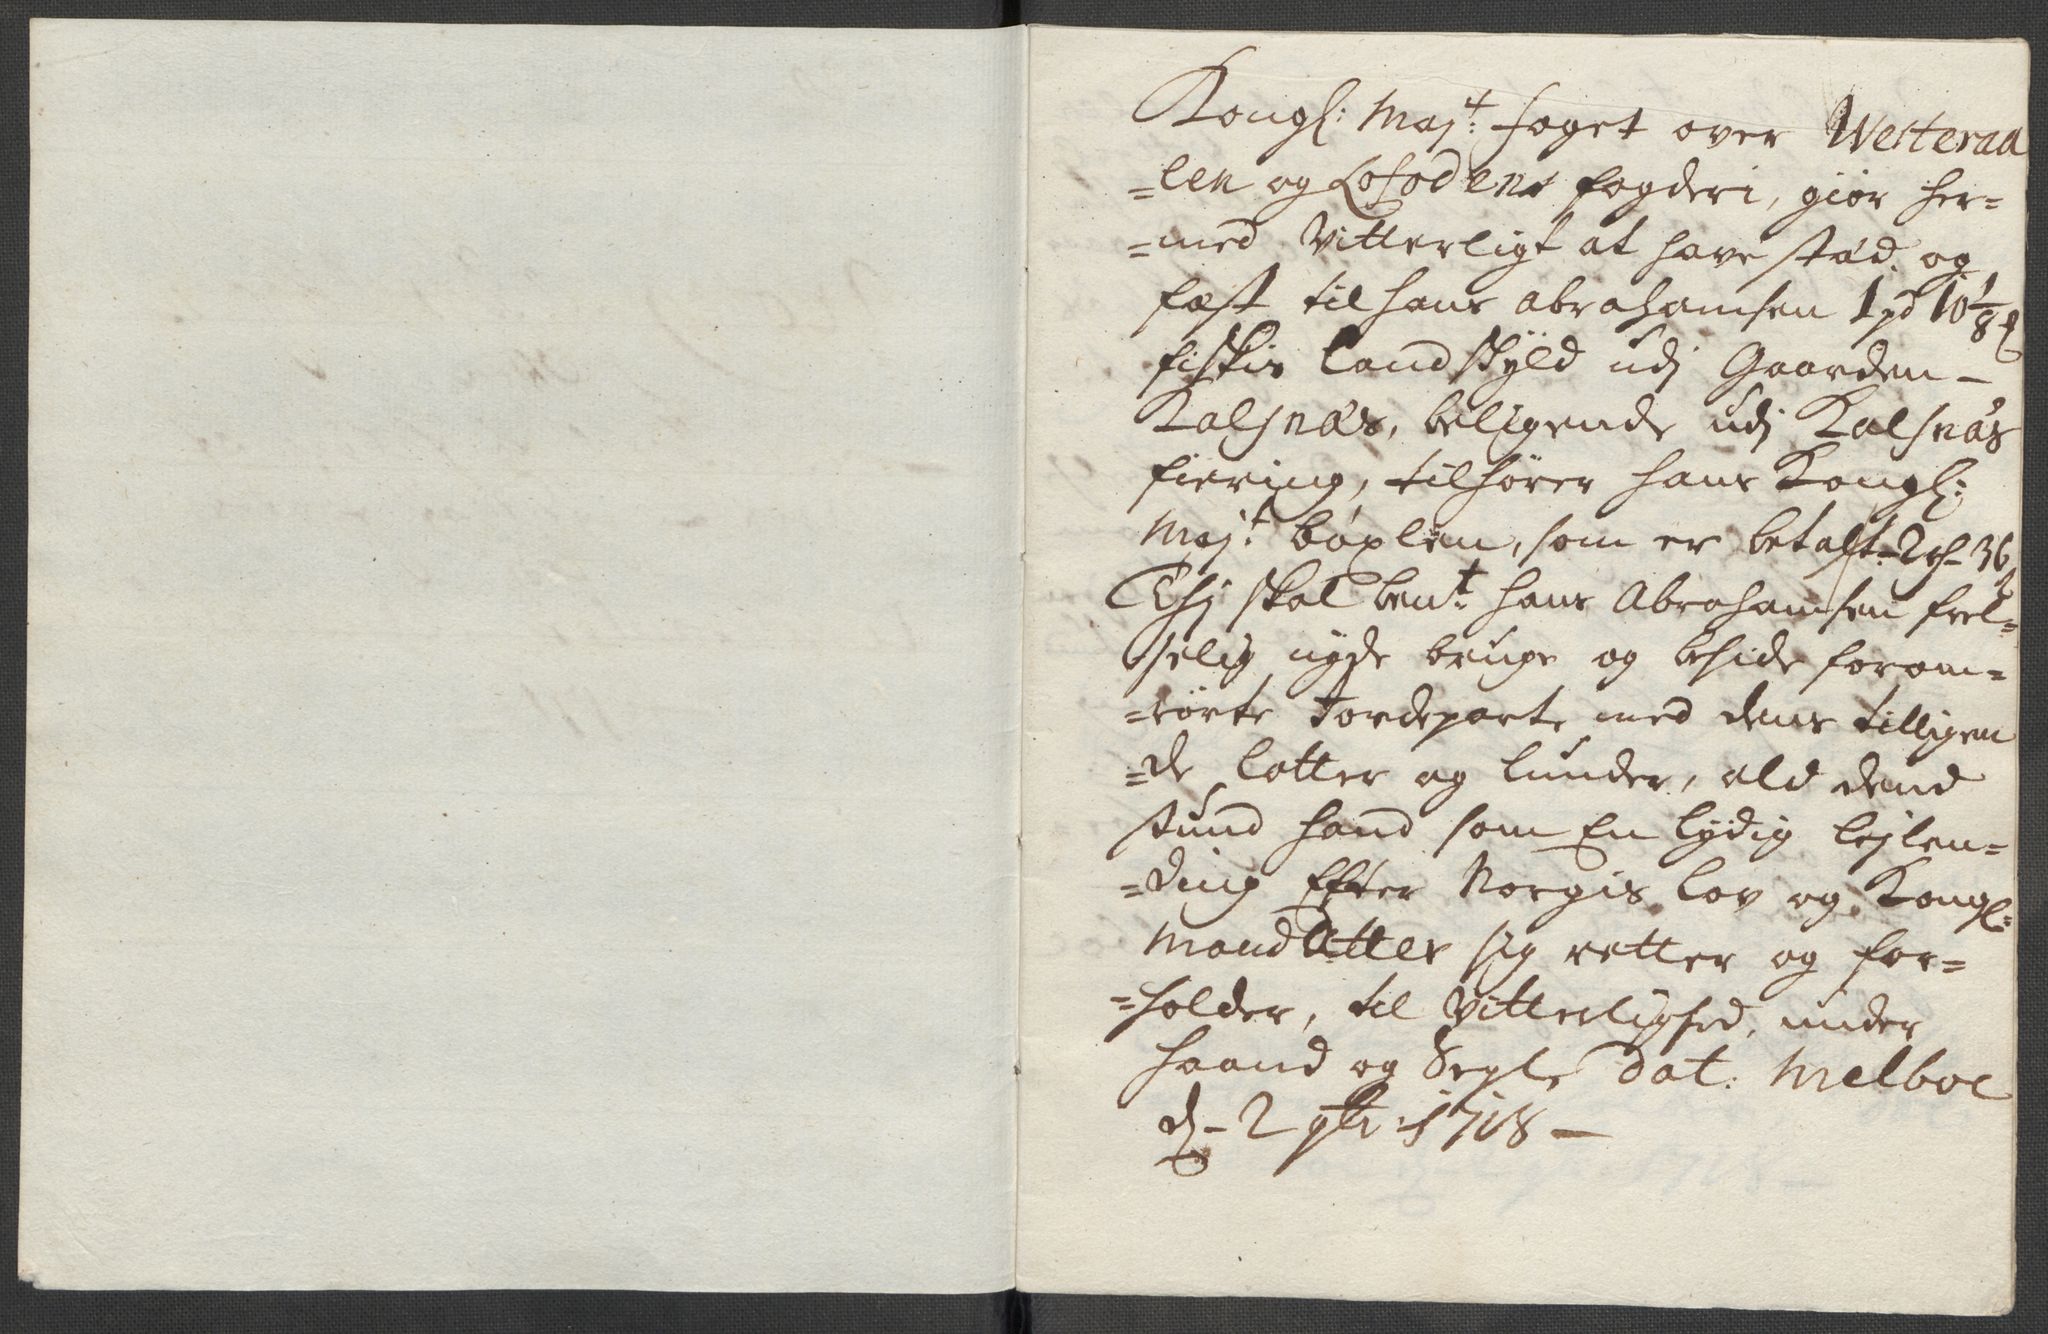 Kongl: Maj:t foget over Westeraa
=len og Lofodens fogderi, giør her=
=med Vitterligt at have stæd og
fæst til Hans Abrahamsen 1 pd 10 1/8
fiskis Landskyld udj Gaarden -
Kalsnæs, beligende udj Kalsnæs
fiering, tilhører Hans Kongl:
Maj:t bøxlen, som er betalt - 2 rh - 36
Thj skal ben:t Hans Abrahamsen frel=
selig nyde bruge og beside forom=
=rørte Jordeparte med dens tilligen
=de lotter og lunder, ald dend
stund hand som En lydig lejlen=
=ding Efter Norgis lov og Kongl:
Mandatter sig retter og for=
=holder, til Vitterlighed, under
haand og Segle Dat: Melboe
dj - 2 1718 -